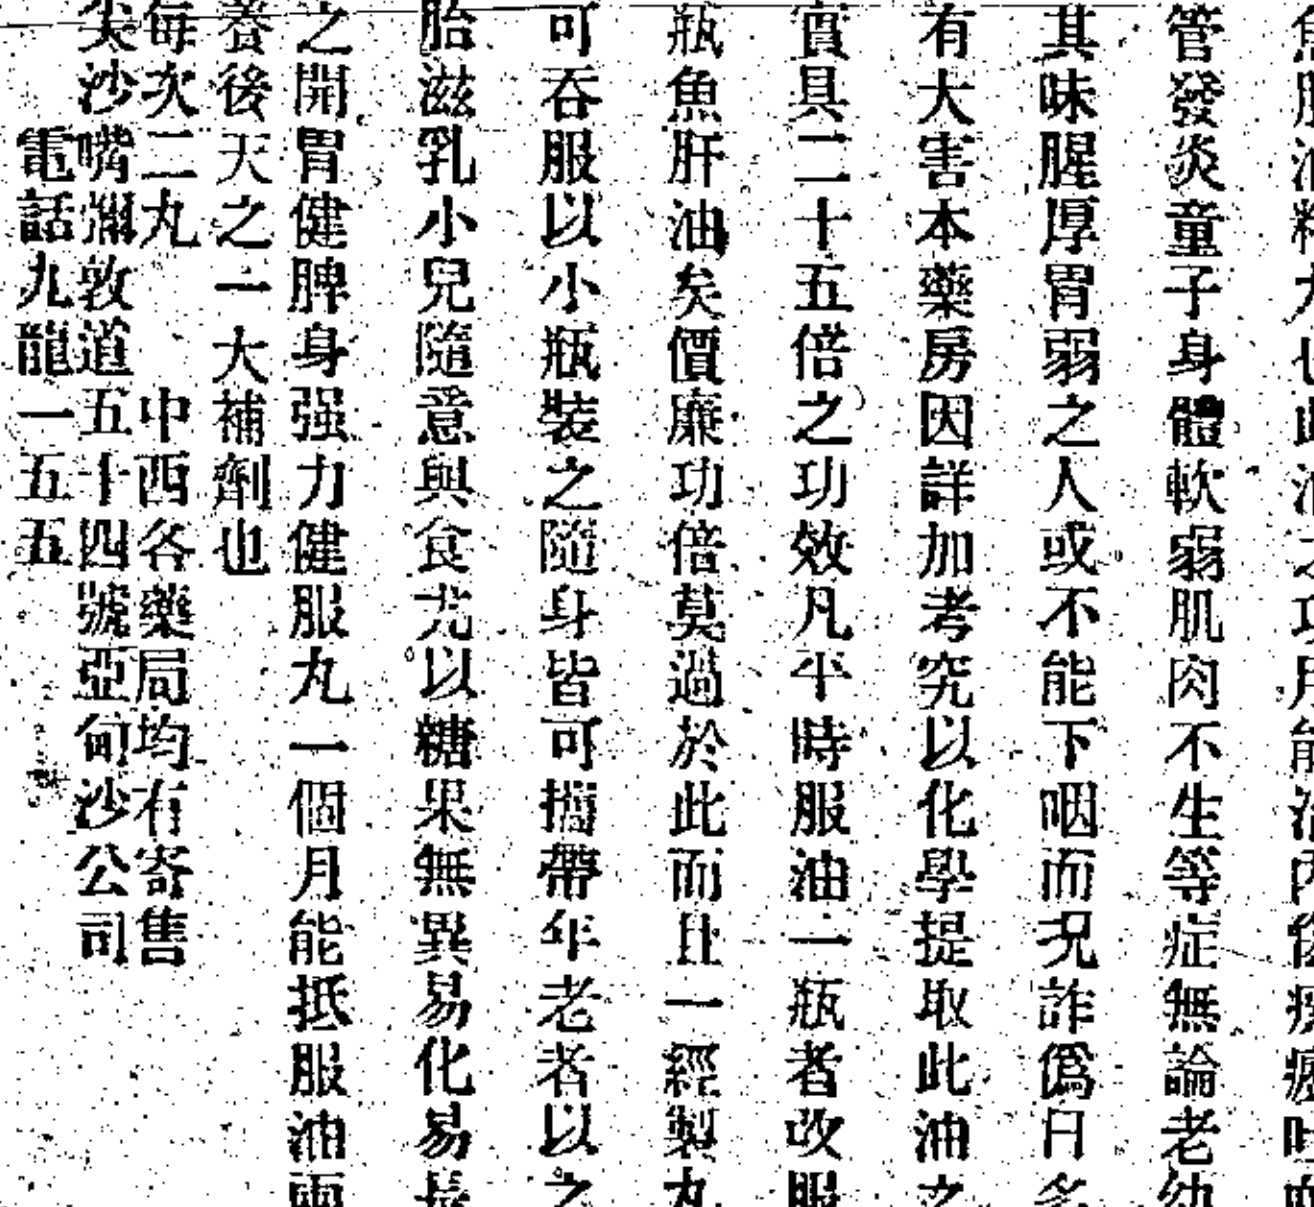 管發炎童子身體軟弱肌肉不生等症無論老幼
其味腥厚胃弱之人或不能下咽而况詐僞日多
有大害本藥房因詳加考究以化學提取此油之
實具二十五倍之功效凡平時服油一瓶者改服
瓶魚肝油矣價廉功倍莫過於此而且一經製丸
可吞服以小瓶裝之隨身皆可攜帶年老者以之
胎滋乳小兒隨意與食尤以糖果無異易化易長
之開胃健脾身强力健服丸一個月能抵服油兩
養後天之一大補劑也
每次二丸 中西各藥局均有寄售
尖沙嘴彌敦道五十四號亞甸沙公司
電話九龍一五五